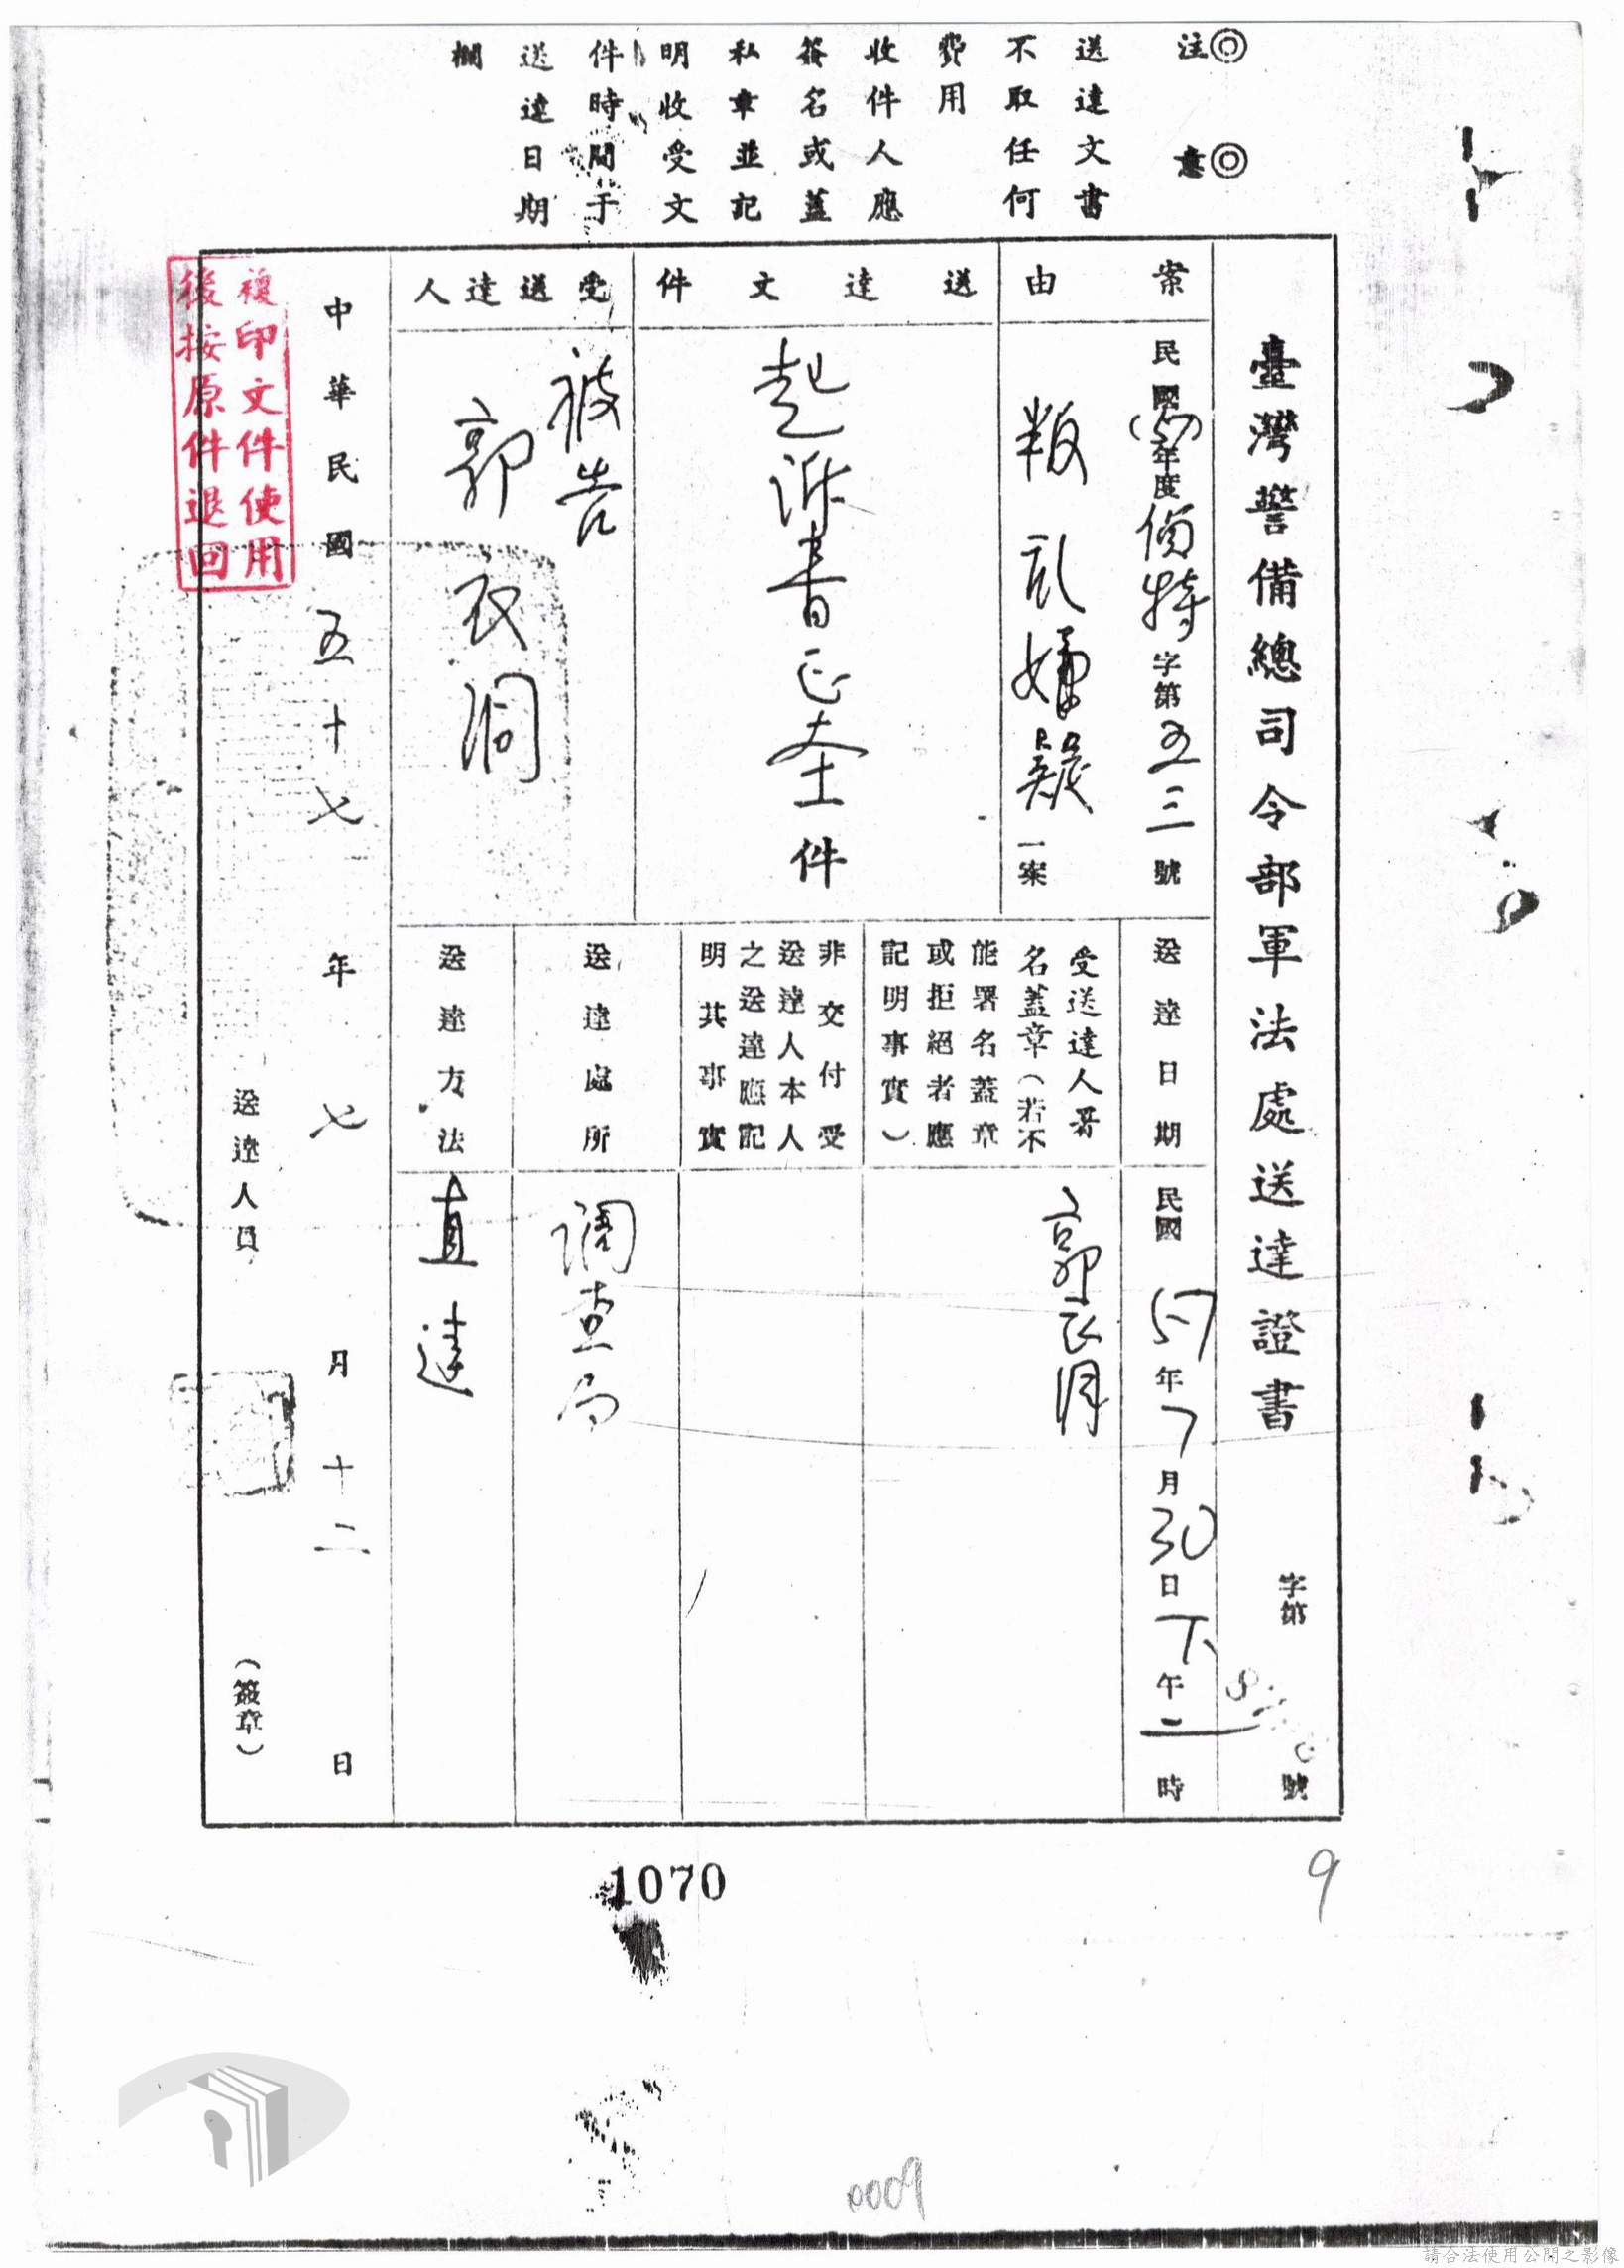 注意
送達文書
不取任何
費用
收件人應
簽名或蓋
私章並記
明收受文
件時間于
送達日期
欄
臺灣警備總司令部軍法處送達證書
字第
號
案由
民國(57)年度偵特字第五三號
叛亂嫌疑一案
送達文件
起訴書正本壹件
受送達人
被告
郭衣洞
送達日期
民國57年7月30日下午二時
受送達人署
名蓋章(若不
能署名蓋章
或拒絕者應
記明事實)
郭衣洞
非交付受
送達人本人
之送達應記
明其事實
送達處所
調查局
送達方法
直達
中華民國五十七年七月十二日
送達人員
(簽章)
複印文件使用
後按原件退回
1070
9
0009
請合法使用公開之影像